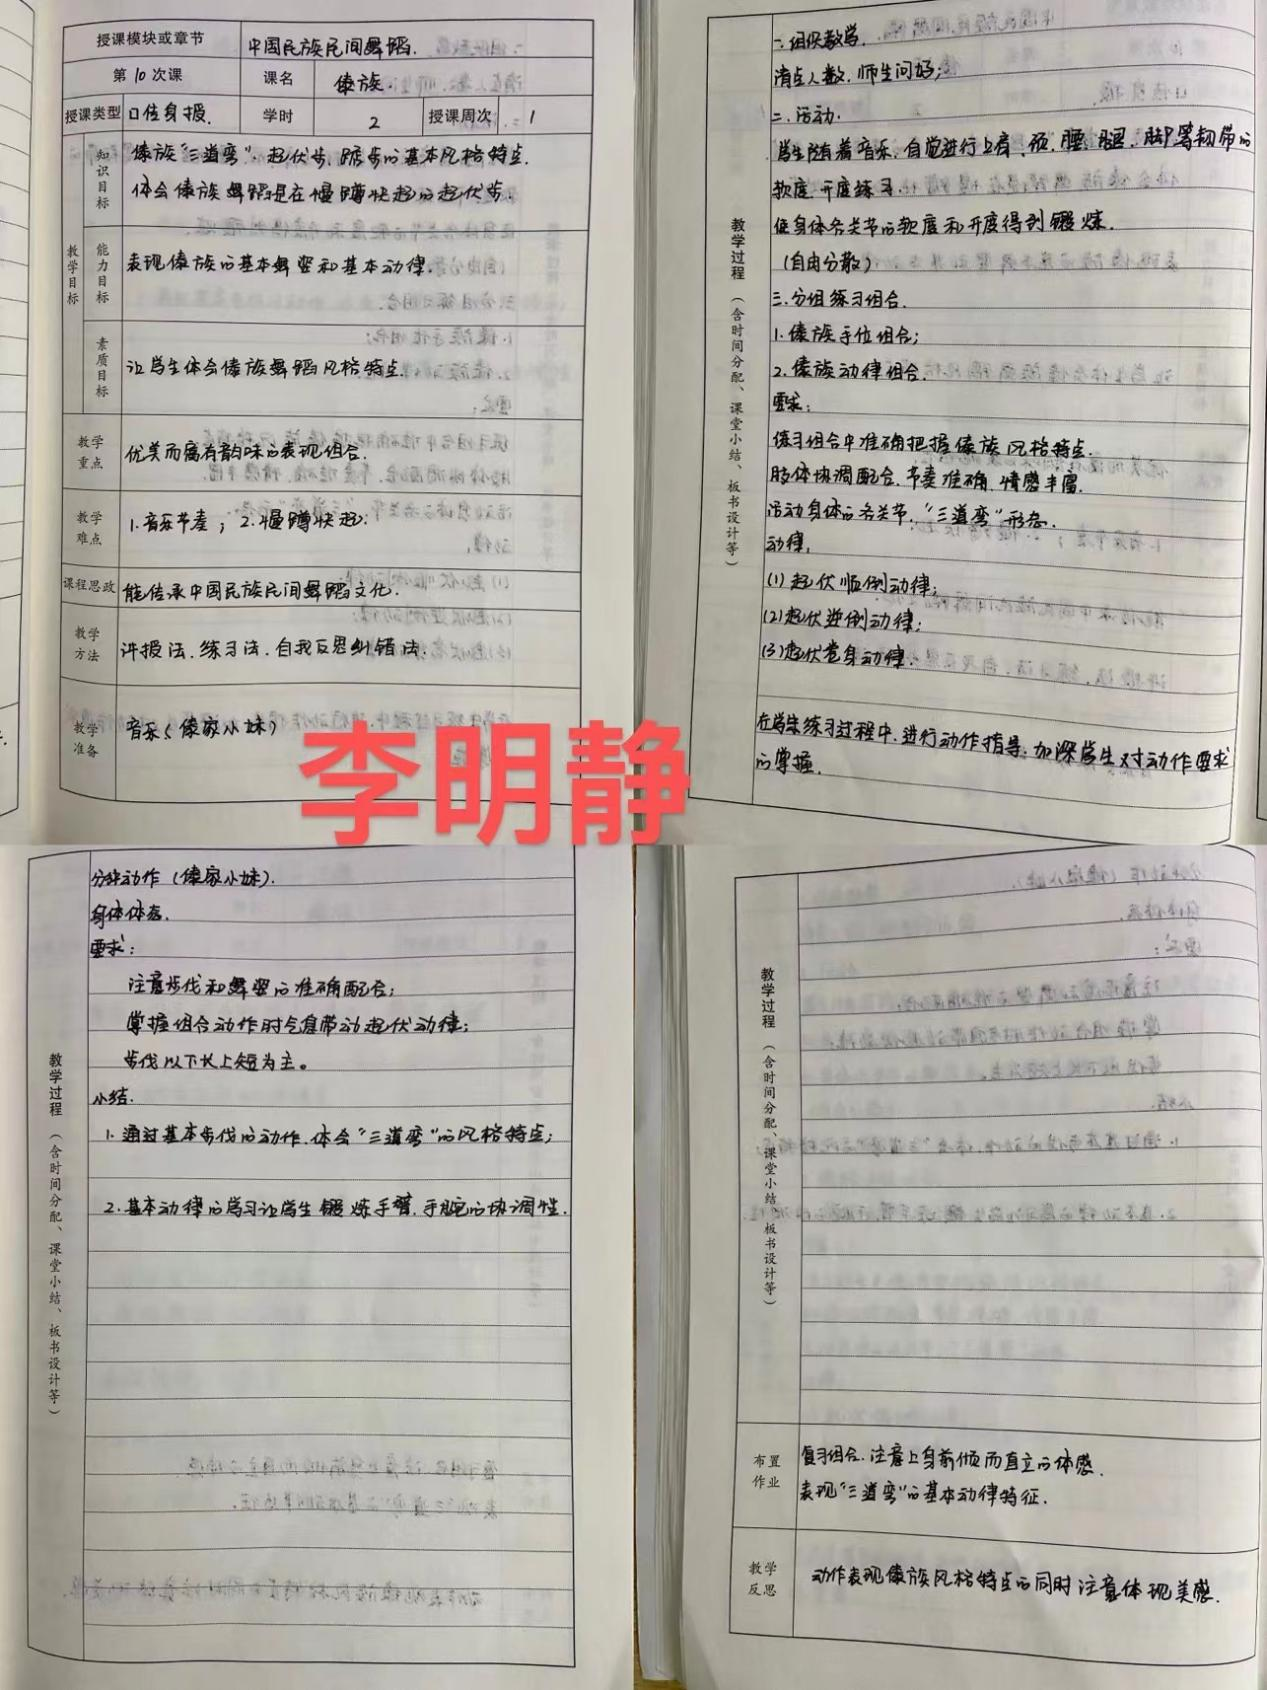 授课模块或章节 中国民族民间舞蹈.
第10次课 课名 傣族.
授课类型 口传身授. 学时 2 授课周次 1
教学目标
知识目标
傣族"三道弯".起伏步.踮步的基本风格特点.
体会傣族舞蹈是在慢蹲快起的起伏步.
能力目标
表现傣族的基本舞姿和基本动律.
素质目标
让学生体会傣族舞蹈风格特点.
教学重点
优美而富有韵味的表现组合.
教学难点
1.音乐节奏；2.慢蹲快起.
课程思政 能传承中国民族民间舞蹈文化.
教学方法
讲授法.练习法.自我反思纠错法.
教学准备
音乐《傣家小妹》
教学过程（含时间分配、课堂小结、板书设计等）
一.组织教学.
清点人数.师生问好;
二.活动.
学生随着音乐.自觉进行上肩、颈、腰、腿、脚等韧带的
软度.开度练习.
使身体各关节的软度和开度得到锻炼.
(自由分散)
三.分组练习组合.
1.傣族手位组合;
2.傣族动律组合.
要求:
练习组合中准确把握傣族风格特点.
肢体协调配合.节奏准确.情感丰富.
活动身体的各关节."三道弯"形态.
动律.
(1)起伏顺倒动律;
(2)起伏逆倒动律;
(3)起伏卷身动律.
在学生练习过程中.进行动作指导.加深学生对动作要求
的掌握.
李明静
教学过程（含时间分配、课堂小结、板书设计等）
分块动作(傣家小妹).
身体体态.
要求:
注意步伐和舞姿的准确配合;
掌握组合动作时气息带动起伏动律;
步伐以下长上短为主。
小结.
1.通过基本步伐的动作.体会"三道弯"的风格特点;
2.基本动律的学习让学生锻炼手臂.手腕的协调性.
教学过程（含时间分配、课堂小结、板书设计等）
布置作业
复习组合.注意上身前倾而直立的体感.
表现"三道弯"的基本动律特征.
教学反思
动作表现傣族风格特点的同时注意体现美感.